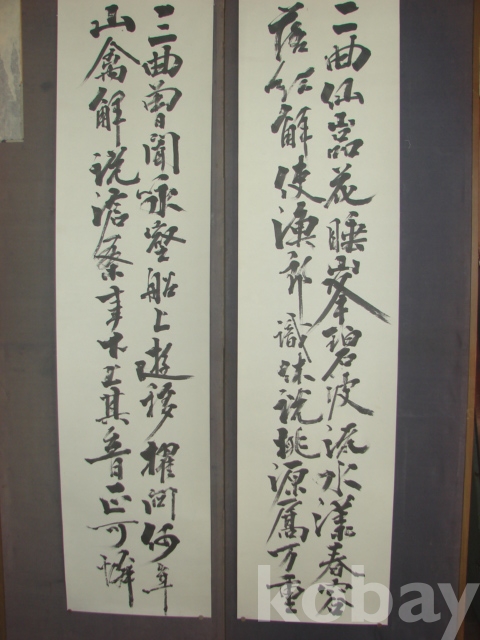 二曲仙嵒花睡峯碧波流水漾春容
落紅解使漁郎識休說桃源万重
三曲曾聞壑船上遊移櫂問何年
山禽解說滄桑事其音正可憐
kcbay